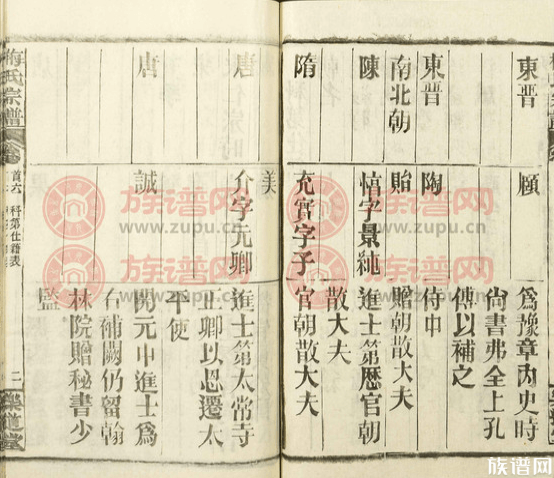 東晉 頤 爲豫章內史時
尚書弗全上孔
傳以補之
東晉 陶 侍中
南北朝 貽 贈朝散大夫
陳 慎字景純 進士第歷官朝
散大夫
隋 充實字子 官朝散大夫
美
唐 介字元卿 進士第太常寺
正卿以恩遷太
平使
唐 誠 開元中進士爲
右補闕仍留翰
林院贈秘書少
監
梅氏宗譜 首六 科第仕籍表 二 樂道堂
族谱网
www.zupu.cn
族谱网
www.zupu.cn
族谱网
族谱网
族谱网